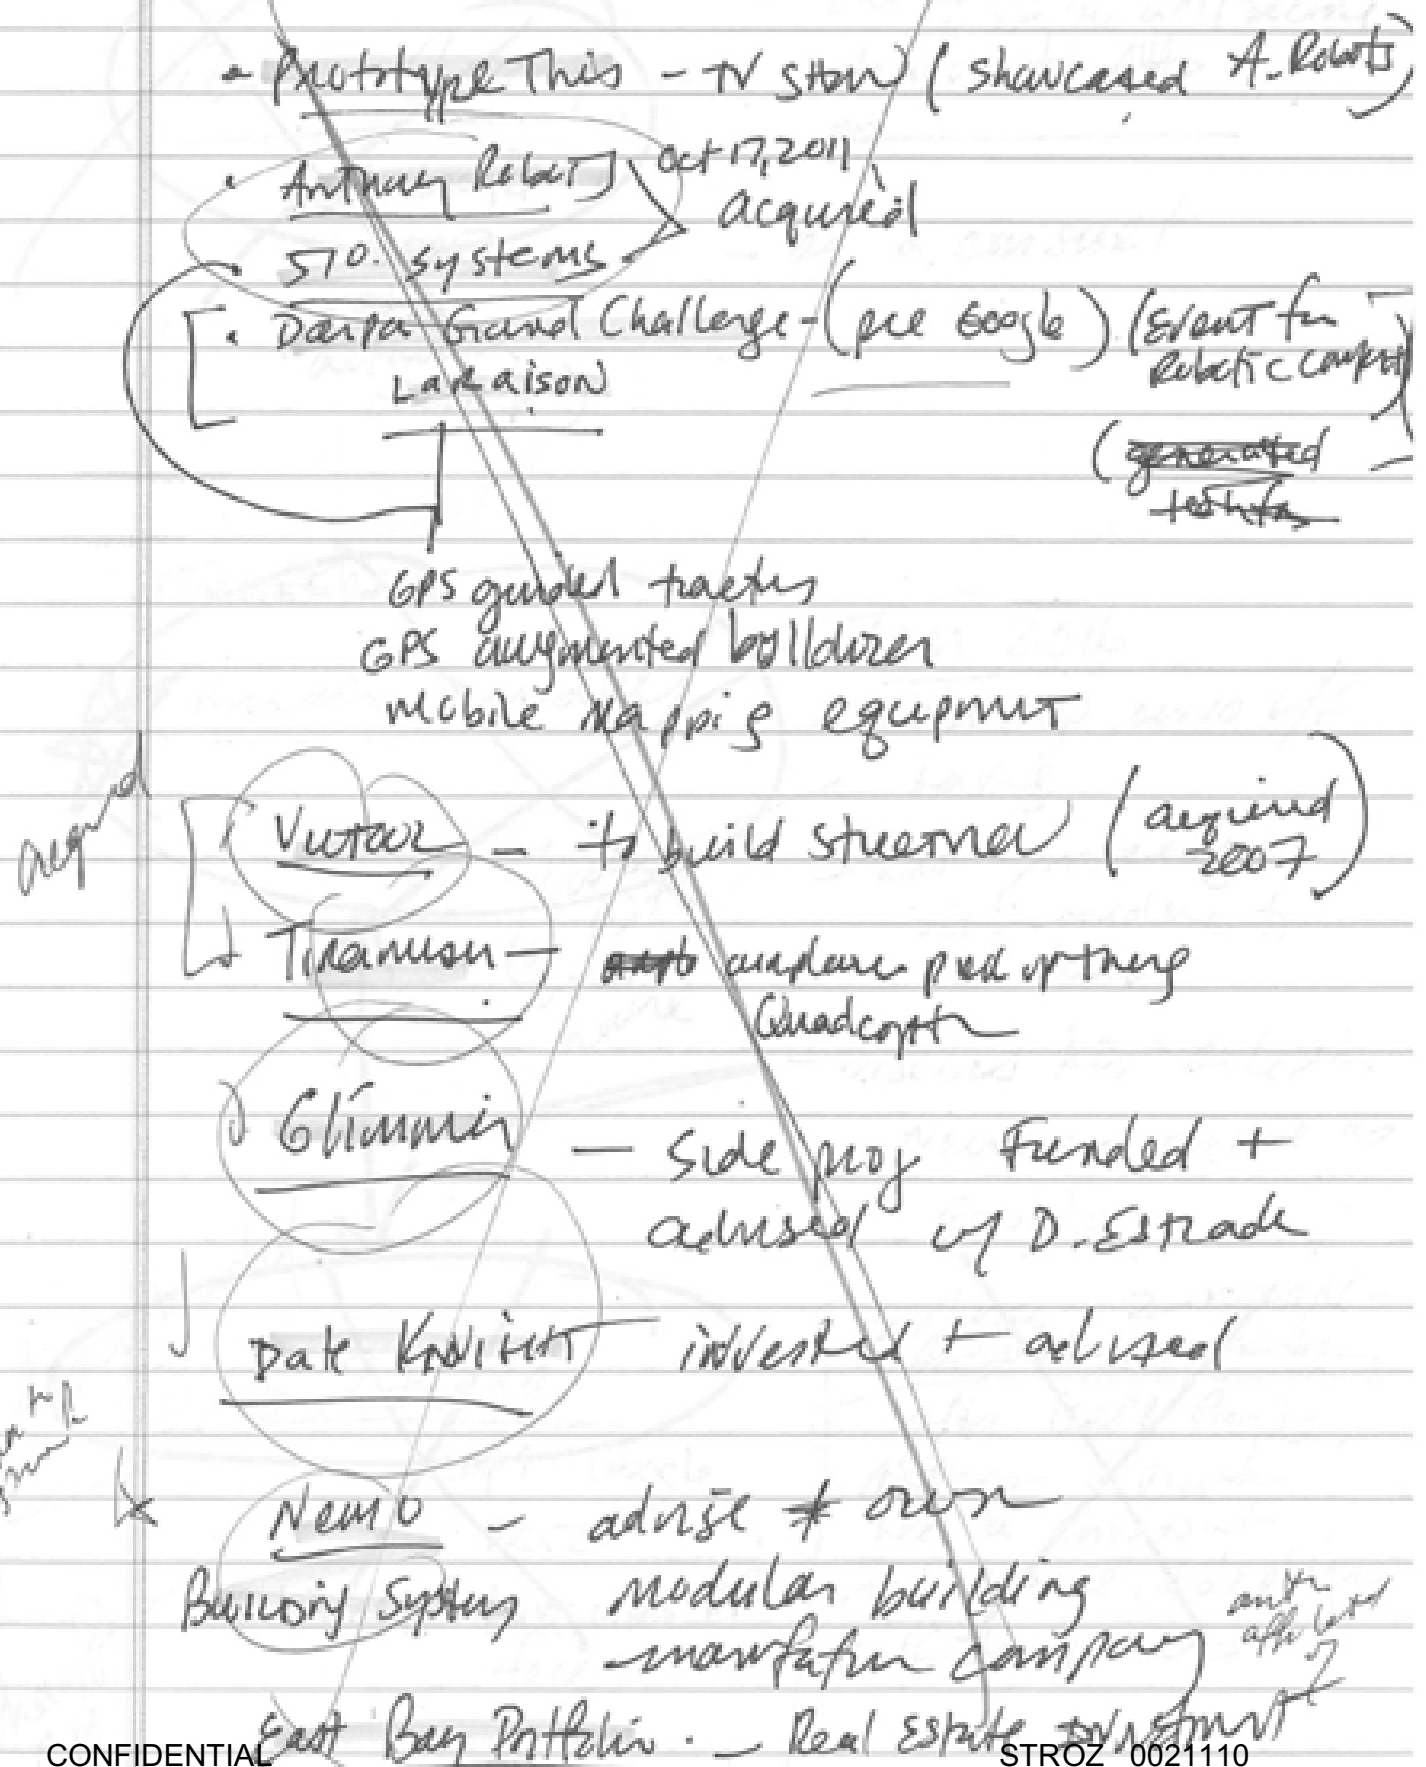 • Prototype This - TV Show (Showcased A. Robots)
• Anthony Robots
Oct 17, 2011
acquired
• 510. systems
• Darpa Grand Challenge - (pre Google) (Event for
Robotic
LaRaison
(generated
GPS guided tractors
GPS augmented bulldozer
mobile mapping equipment
acquired
Vutool - to build streetview (acquired
2007)
Tiramisu - airplane pick up thing
Quadcopter
Glimmer - Side proj Funded +
advised w/ D. Estrada
Date Knight - invested + advised
Nemo - advise + own
Building Systems modular building
- manufature company
East Bay Portfolio. - Real Estate investment
CONFIDENTIAL
STROZ_0021110